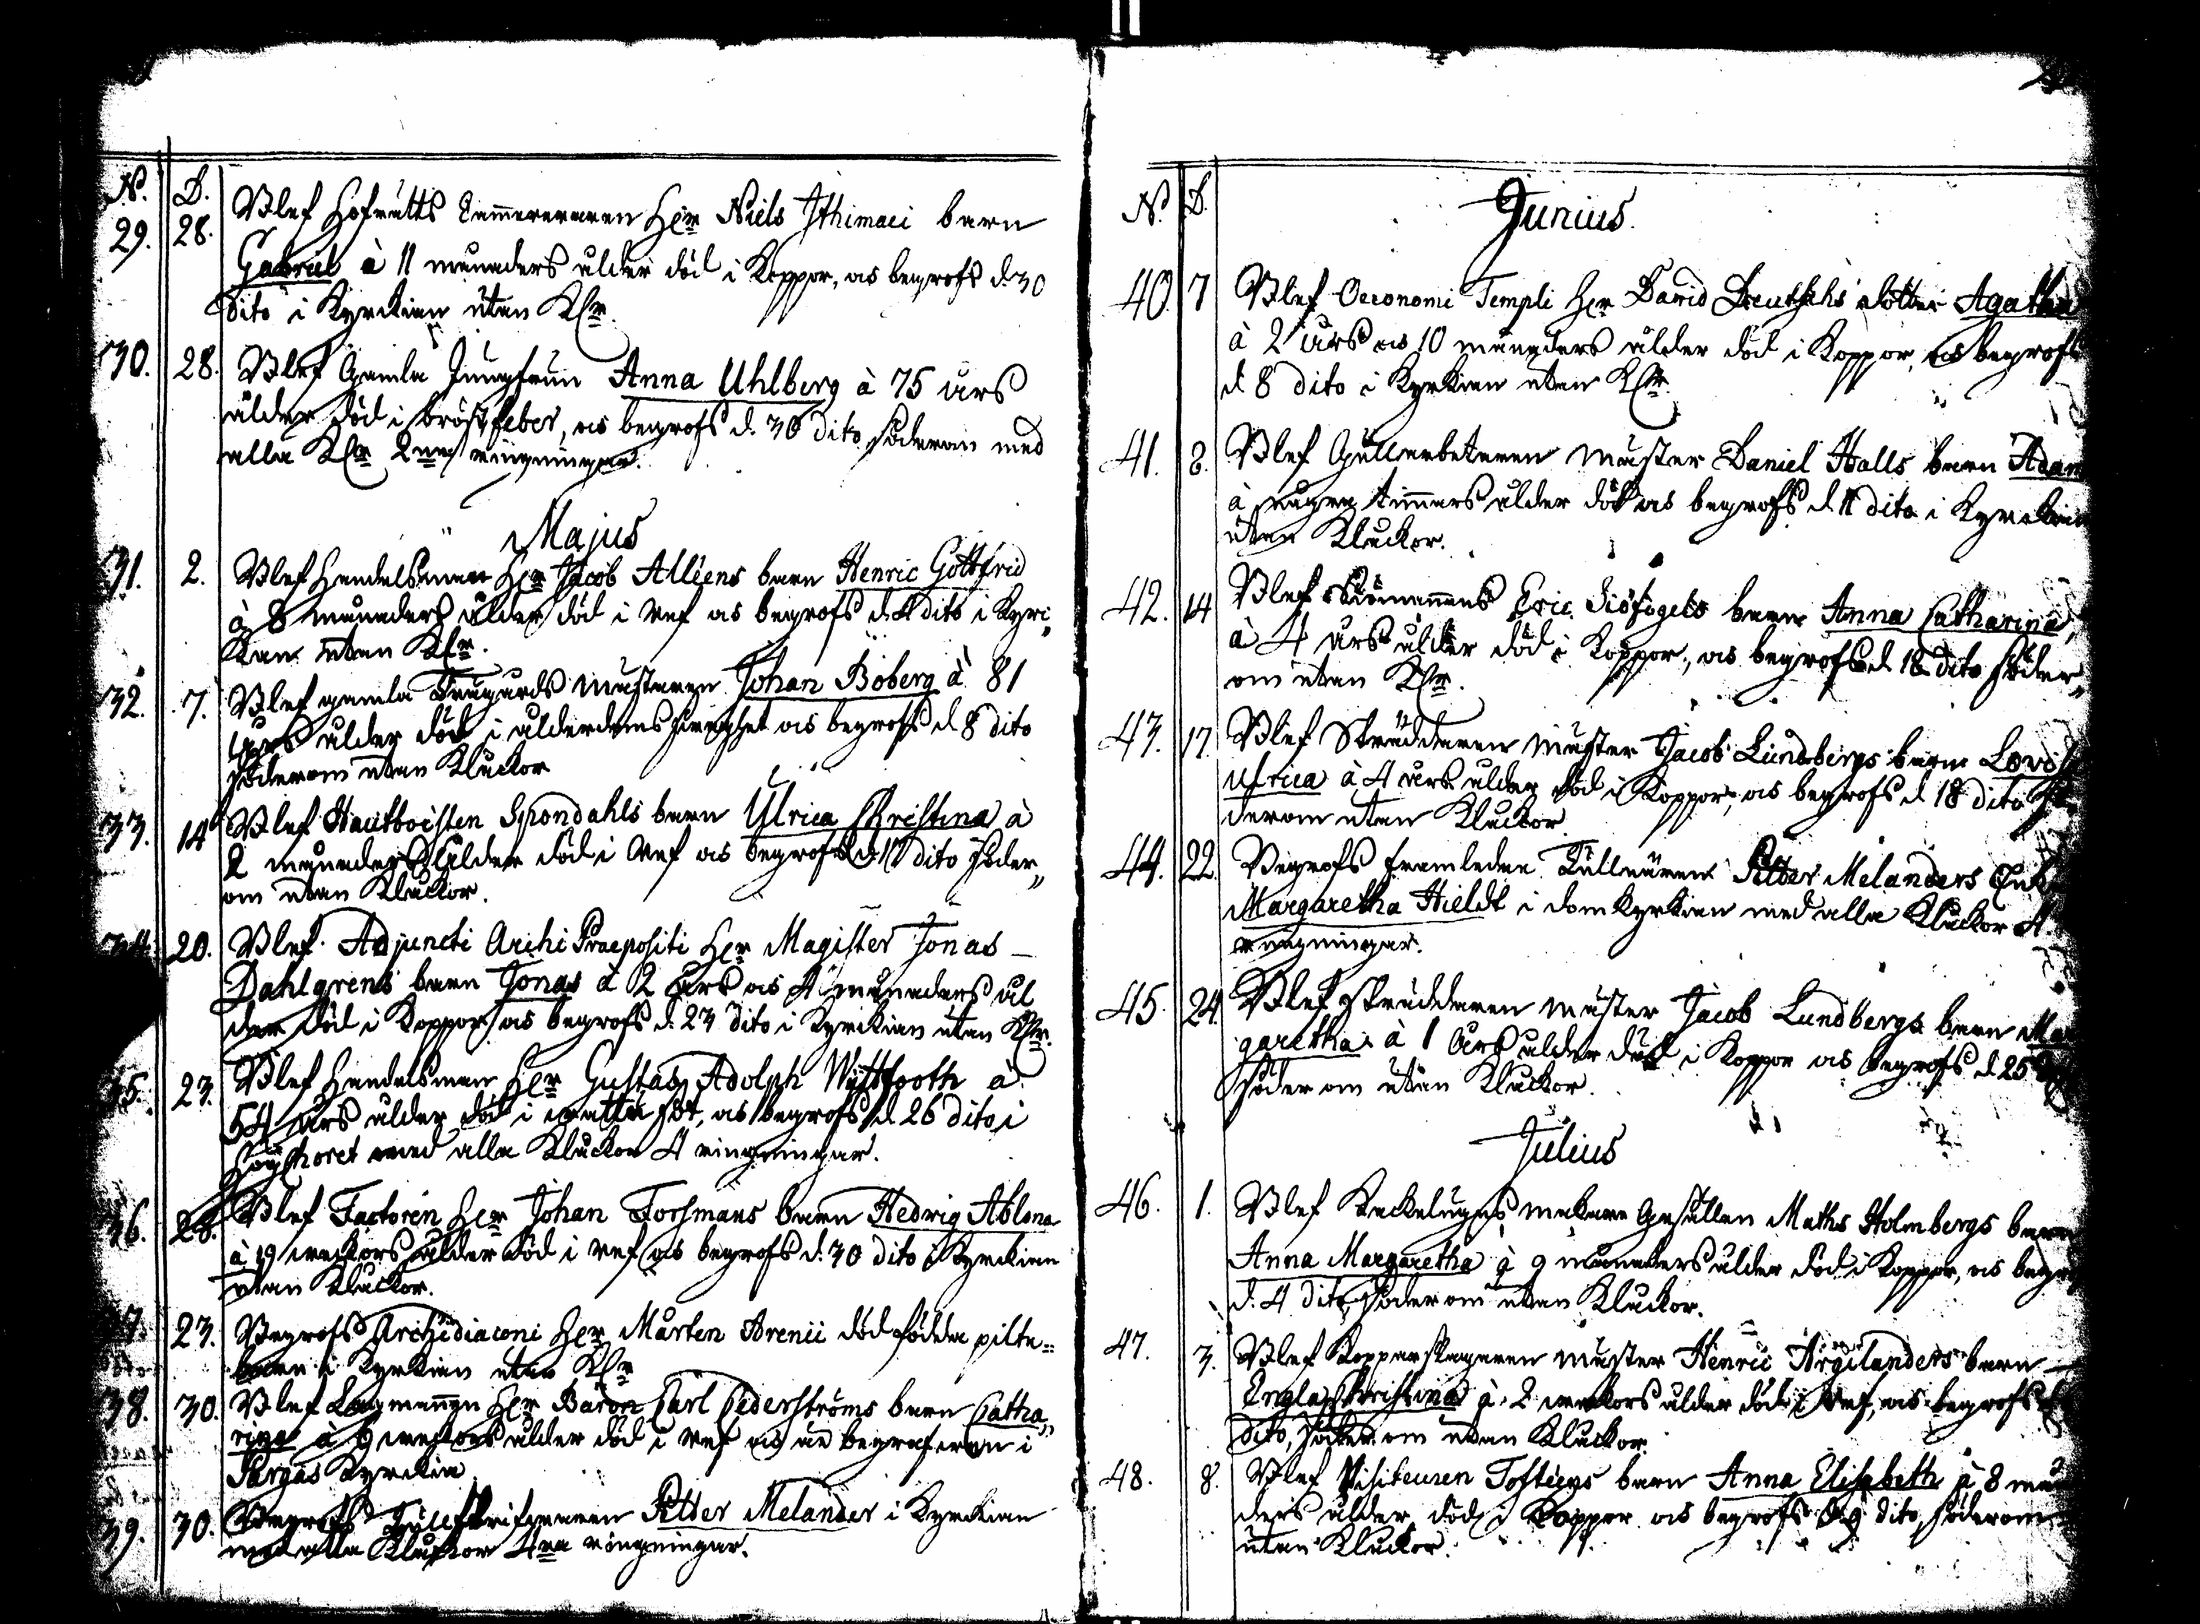 N. D.
29. 28. Blef Hofrätts Cammereraren Her Niels Ithimaei barn
Gabriel à 11 månaders ålder död i Koppor, och begrofs d. 30
dito i Kyrckian utan Klr.
30. 28. Blef Gamla Jungfrun Anna Uhlberg à 75 års
ålder död i bröstfeber, och begrofs d. 30 dito söderom med
alla Klr 2ne ringningar.
Majus
31. 2. Blef Handelsman Her Jacob Alléens barn Henric Gottfrid
à 8 månaders ålder död i ref och begrofs d. 4 dito i Kyr
kan utan Klr.
32. 7. Blef gamla Mästaren Johan Boberg à 81
åhrs ålder död i ålderdoms och begrofs d. 8 dito
söderom utan Kluckor
33. 14 Blef Hautboisten Spondahls barn Ulrica Christina à
2 månaders ålder död i ref och begrofs d. 17 dito söder
om utan Kluckor.
34. 20. Blef Adjuncti Archi Præpositi Her Magister Jonas
Dahlgrens barn Jonas à 2 åhrs och 4 månaders ål
der död i Koppor, och begrofs d. 23 dito i Kyrckian utan Klr.
35. 23. Blef Handelsman Her Gustav Adolph Wittfooth à
54 åhrs ålder död i wattu sot, och begrofs d. 26 dito i
Högchoret med alla Kluckor 4 ringningar.
36. 28. Blef Factoren Her Johan Forsmans barn Hedvig Ablona
à 19 weckors ålder död i ref och begrofs d. 30 dito i Kyrckian
utan Kluckor.
37. 23. Begrofs Archidiaconi Her Mårten Arenii dödfödda pilte
barn i Kyrckian utan Klr
38. 30. Blef Lagmannen Her Baron Carl Cederströms barn Catha
rina à 9 weckors ålder död i ref och är begrafwen i
Pargas Kyrckia
39. 30. Begrofs Tullskrifwaren Petter Melander i Kyrckian
med alla Kluckor 4ra ringningar.

N. D.
Junius.
40. 7 Blef Oeconomi Templi Her David Deutschs dotter Agatha
à 2 åhrs och 10 månaders ålder död i Koppor, och begrofs
d. 8 dito i Kyrkian utan Klr.
41. 8. Blef Gullarbetaren Mäster Daniel Halls barn Adam
à några timmars ålder död och begrofs d. 11 dito i Kyrckian
utan Kluckor.
42. 14 Blef Eric Siöfogels barn Anna Catharina,
à 4 års ålder död i Koppor, och begrofs d. 18 dito söder
om utan Klr.
43. 17. Blef Skräddaren Mäster Jacob Lundbergs barn Lovis
Ulrica à 4 års ålder död i Koppor, och begrofs d. 18 dito sö
derom utan Kluckor.
44. 22. Begrofs framledne Tullnären Petter Melanders Enk
Margaretha Hieldt i domkyrkian med alla Kluckor 4
ringningar.
45. 24. Blef skräddaren Mäster Jacob Lundbergs barn Mar
garetha à 1 åhrs ålder död i Koppor och begrofs d. 25
söder om utan Kluckor.
Julius
46. 1. Blef Kackelugns makare Gesällen Maths Holmbergs barn
Anna Margaretha à 9 månaders ålder död i Koppor, och begr
d. 4 dito, söder om utan Kluckor.
47. 3. Blef Kopparslagaren Mäster Henric Argilanders barn
Engla Christina à 2 weckors ålder död i ref, och begrofs
dito, söder om utan Kluckor.
48. 8. Blef Visiteuren Tofteens barn Anna Elisabeth à 8 må
ders ålder död i Koppor och begrofs d. 9 dito, söderom
utan Kluckor.